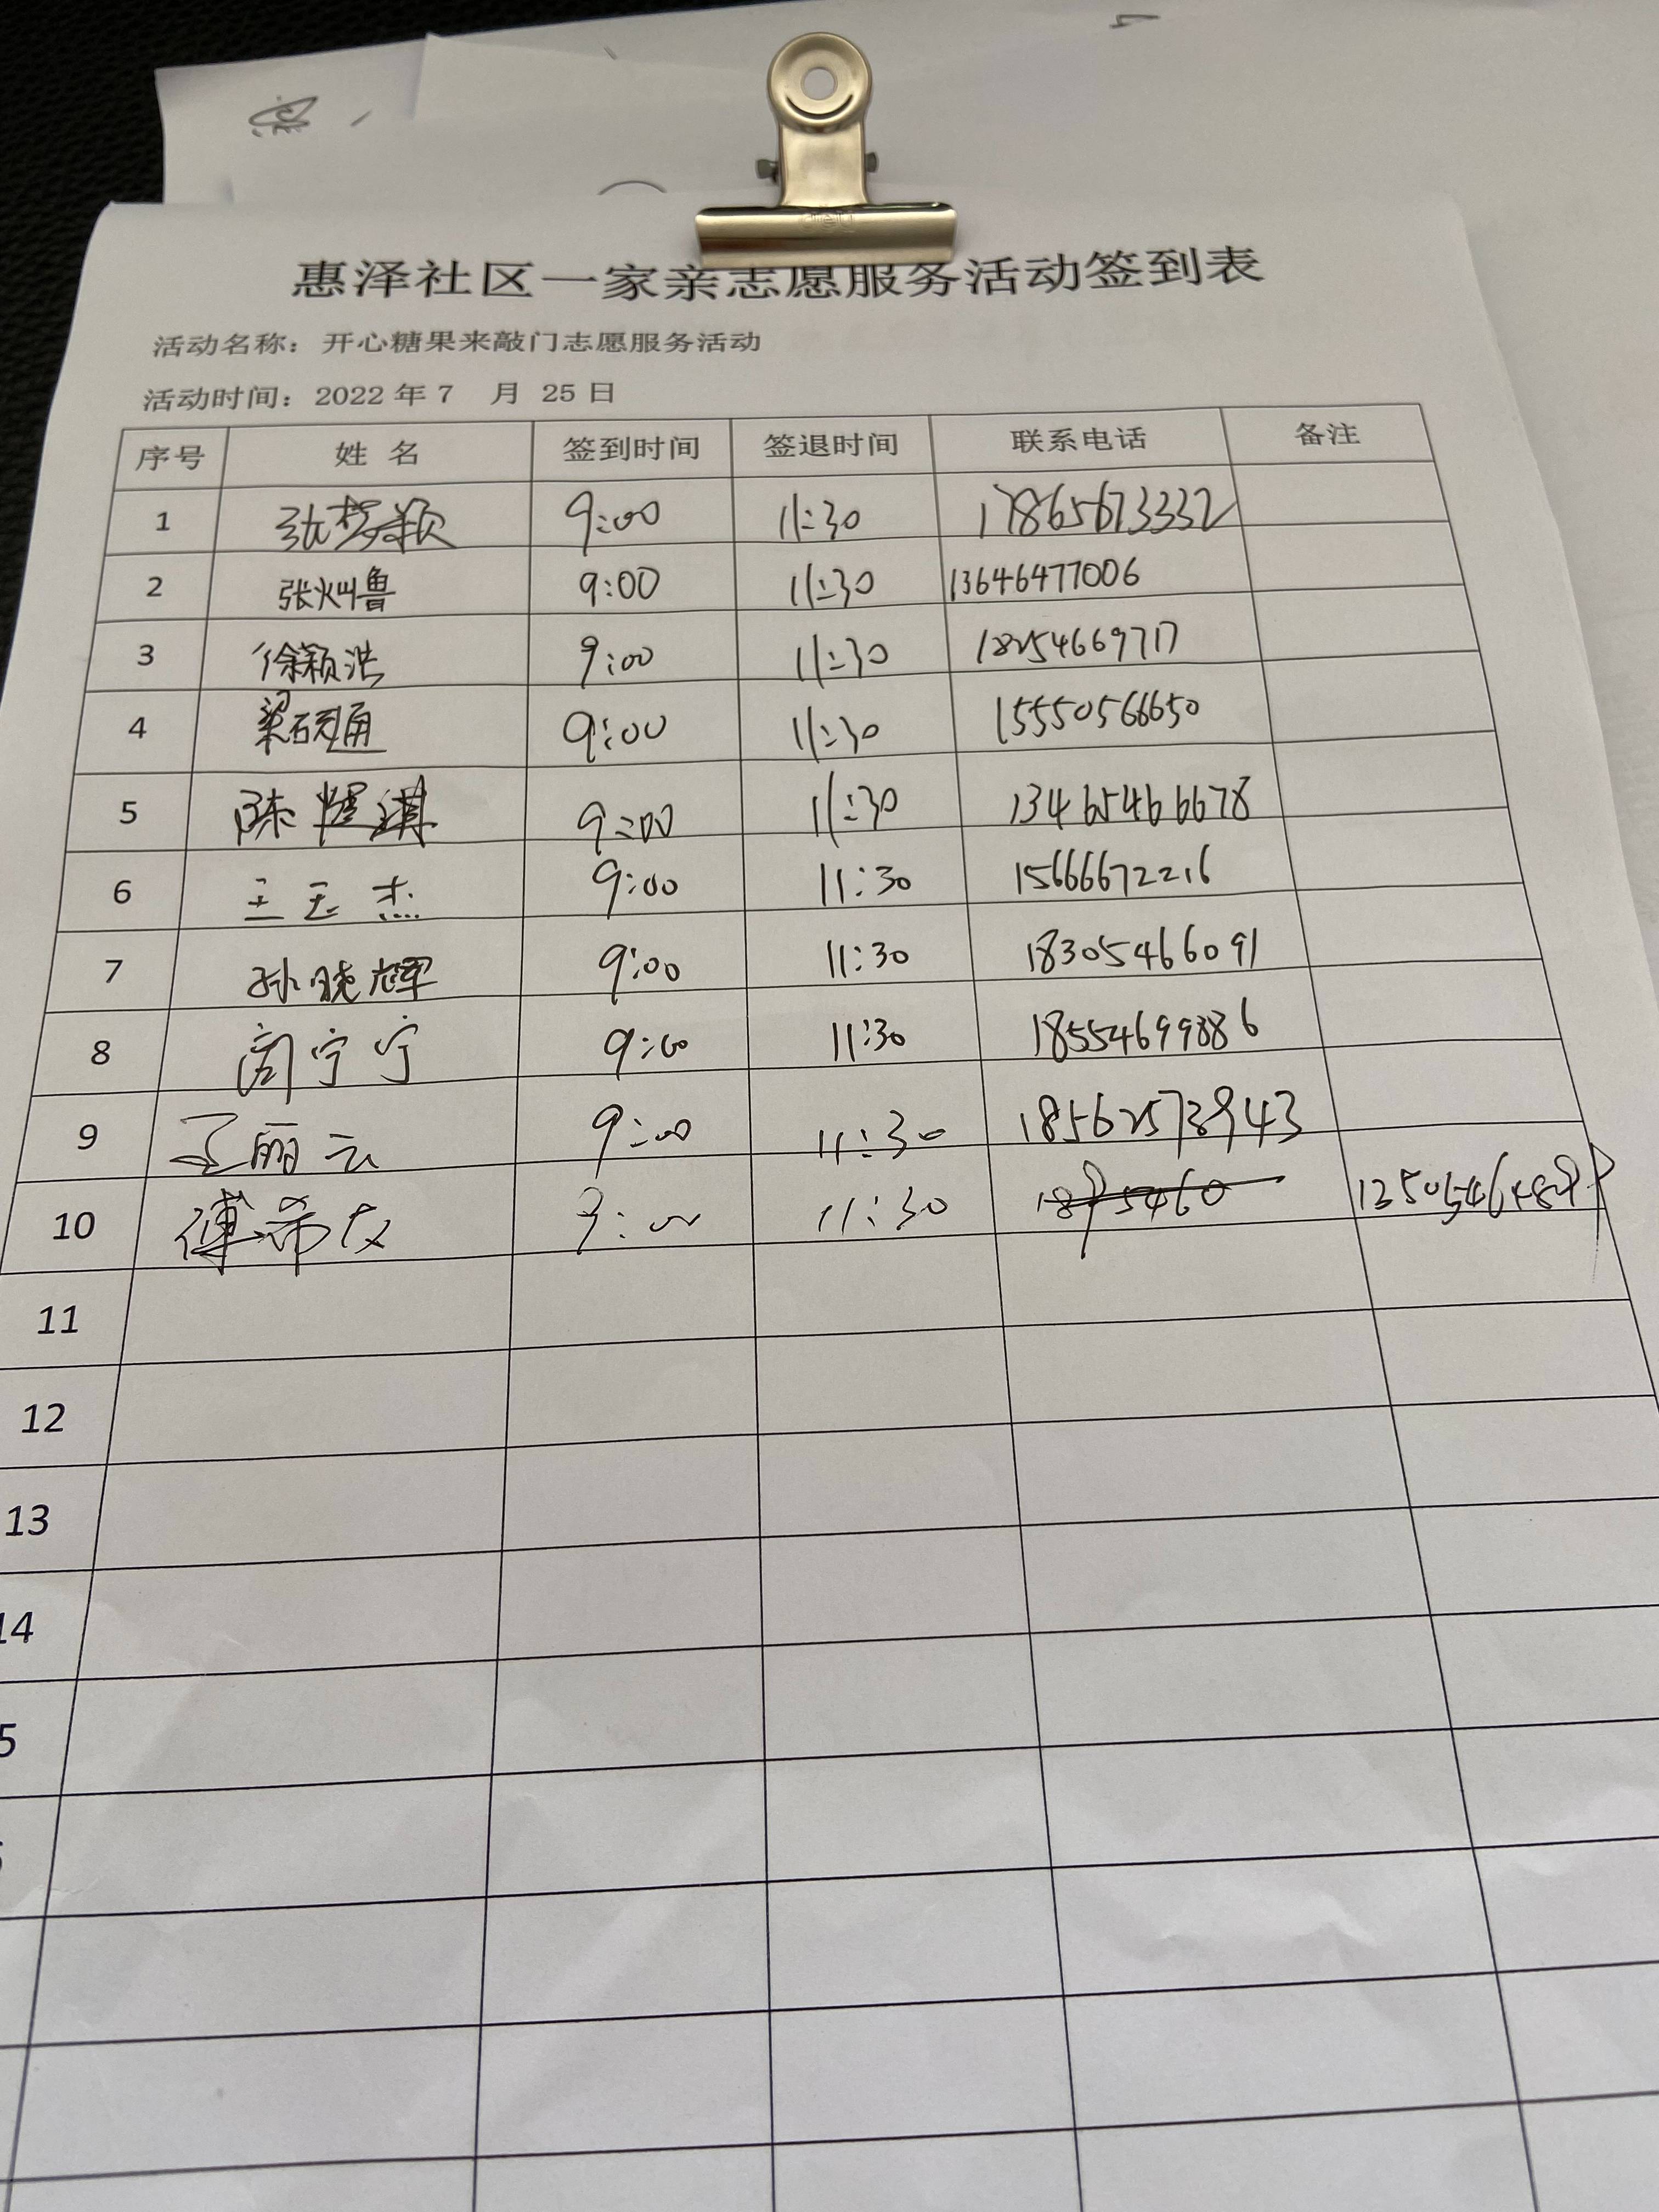 惠泽社区一家亲志愿服务活动签到表
活动名称：开心糖果来敲门志愿服务活动
活动时间：2022 年 7 月 25 日
序号 姓 名 签到时间 签退时间 联系电话 备注
1 张梦颖 9:00 11:30 17865673332
2 张灿鲁 9:00 11:30 13646477006
3 徐颖浩 9:00 11:30 18254669717
4 梁砚通 9:00 11:30 15550566650
5 陈耀淇 9:00 11:30 13465466678
6 王玉杰 9:00 11:30 15666672216
7 孙晓辉 9:00 11:30 18305466091
8 周宁宁 9:00 11:30 18554699886
9 王丽云 9:00 11:30 18562573943
10 傅希友 9:00 11:30
11
12
13
14
5